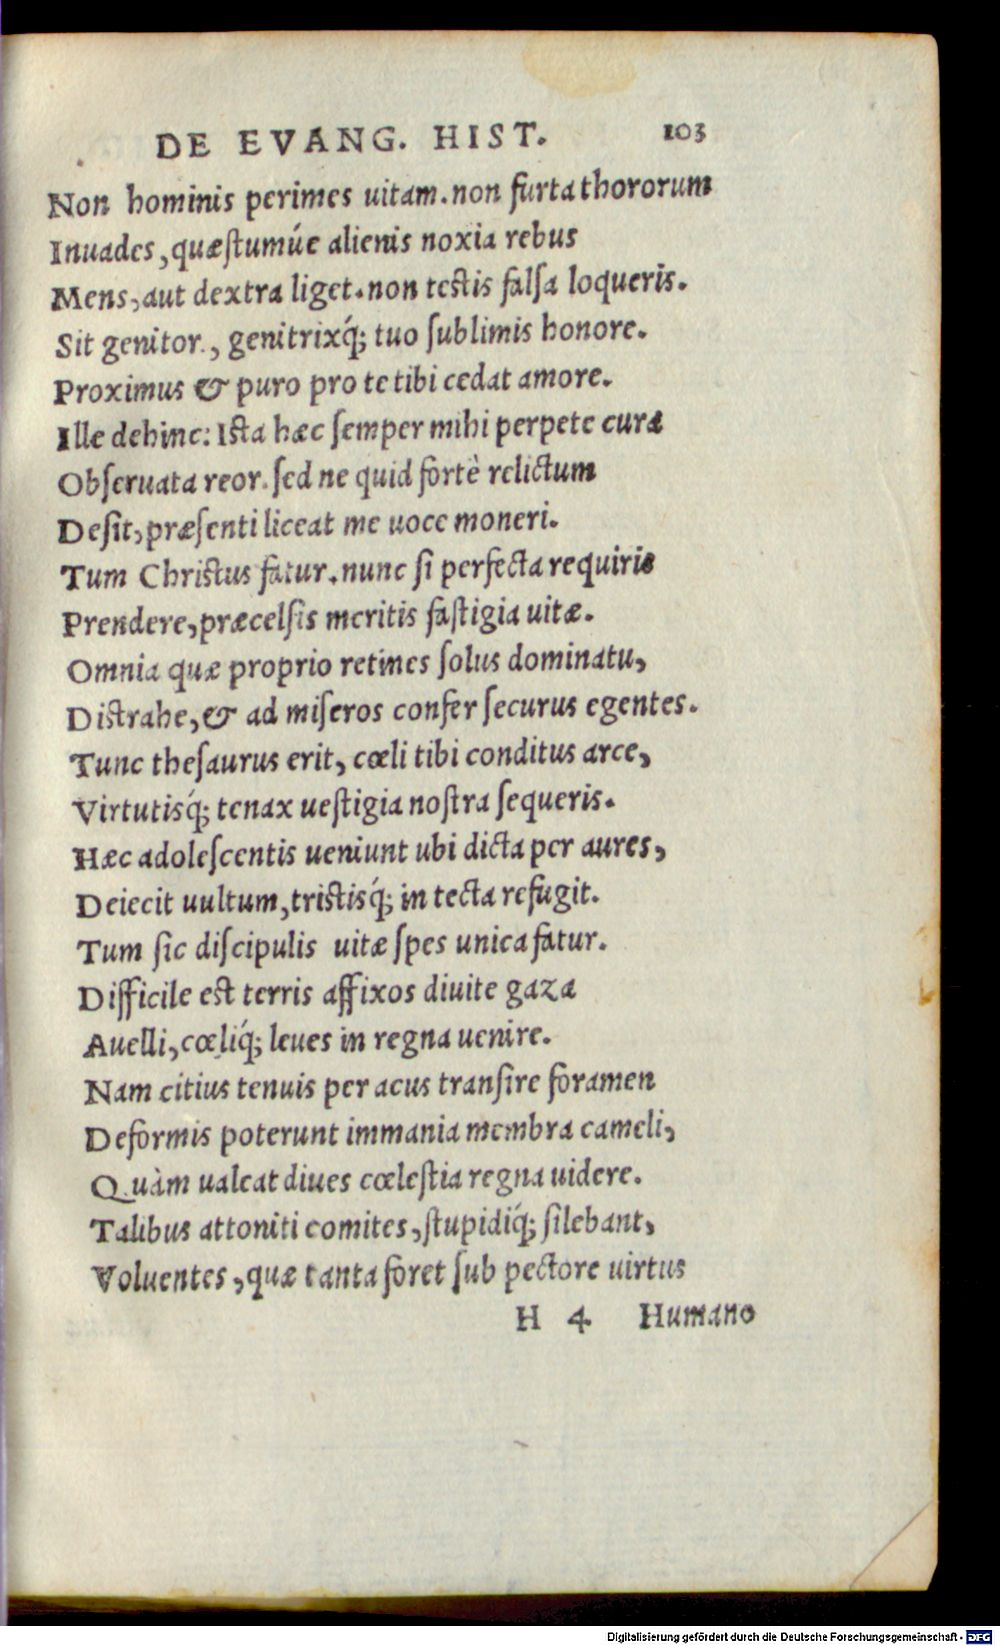 DE EVANG. HIST. 103
Non hominis perimes uitam. non furta thororum
Inuades, quæstumúe alienis noxia rebus
Mens, aut dextra liget. non testis falsa loqueris.
Sit genitor, genitrixq́; tuo sublimis honore.
Proximus & puro pro te tibi cedat amore.
Ille dehinc: Ista hæc semper mihi perpete cura
Obseruata reor. sed ne quid fortè relictum
Desit, præsenti liceat me uoce moneri.
Tum Christus fatur. nunc si perfecta requiris
Prendere, præcelsis meritis fastigia uitæ.
Omnia quæ proprio retines solus dominatu,
Distrahe, & ad miseros confer securus egentes.
Tunc thesaurus erit, cœli tibi conditus arce,
Virtutisq́; tenax uestigia nostra sequeris.
Hæc adolescentis ueniunt ubi dicta per aures,
Deiecit uultum, tristisq́; in tecta refugit.
Tum sic discipulis uitæ spes unica fatur.
Difficile est terris affixos diuite gaza
Auelli, cœliq́; leues in regna uenire.
Nam citius tenuis per acus transire foramen
Deformis poterunt immania membra cameli,
Quàm ualeat diues cœlestia regna uidere.
Talibus attoniti comites, stupidiq́; silebant,
Voluentes, quæ tanta foret sub pectore uirtus
H 4 Humano
Digitalisierung gefördert durch die Deutsche Forschungsgemeinschaft - DFG